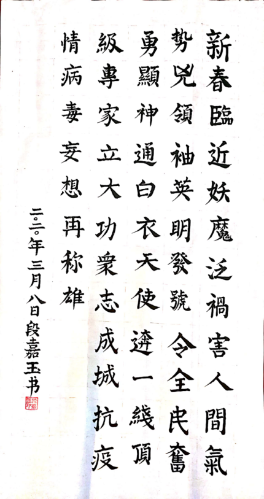 新春臨近妖魔泛禍害人間氣
势兇領袖英明發號令全民奮
勇顯神通白衣天使逩一綫頂
級專家立大功衆志成城抗疫
情病毒妄想再称雄
二〇二〇年三月八日段嘉玉书